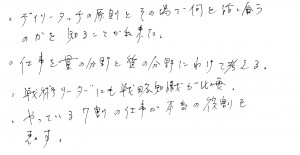 。デイリータッチの原則とその場で何を話し合う
のかを知ることが出来た。
。仕事を量の分野と質の分野にわけて考える。
。戦術リーダーにも戦略知識が必要。
。やっている7割の仕事が本当の役割を
ます。